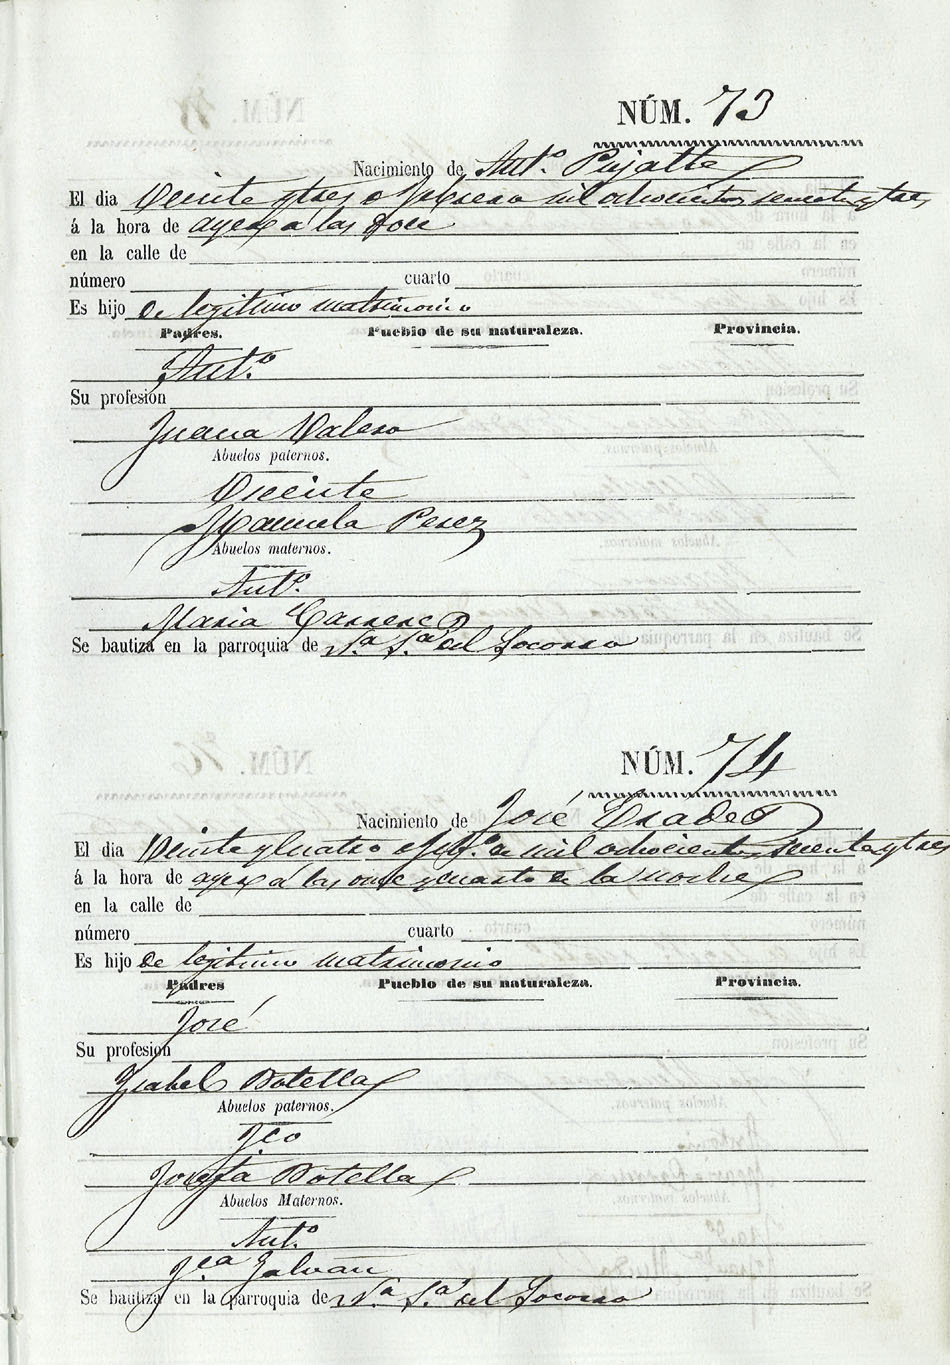 NÚM. 73
Nacimiento de Antº Pujalte
El dia Veinte y tres Febrero mil ochocientos setenta y tres
á la hora de ayer a las doce
en la calle de
número cuarto
Es hijo de legitimo matrimonio
Padres. Pueblo de su naturaleza. Provincia.
Antº
Su profesión
Juana Valero
Abuelos paternos.
Vicente
Manuela Perez
Abuelos maternos.
Antº
Maria
Se bautiza en la parroquia de Nª Sª del Socorro
NÚM. 74
Nacimiento de José
El dia Veinte y Cuatro de mil ochocientos setenta y tres
á la hora de ayer a las once y cuarto de la noche
en la calle de
número cuarto
Es hijo de legitimo matrimonio
Padres Pueblo de su naturaleza. Provincia.
José
Su profesión
Isabel Botella
Abuelos paternos.
Fco
Josefa Botella
Abuelos Maternos.
Antº
Fca Galvañ
Se bautiza en la parroquia de Nª Sª del Socorro